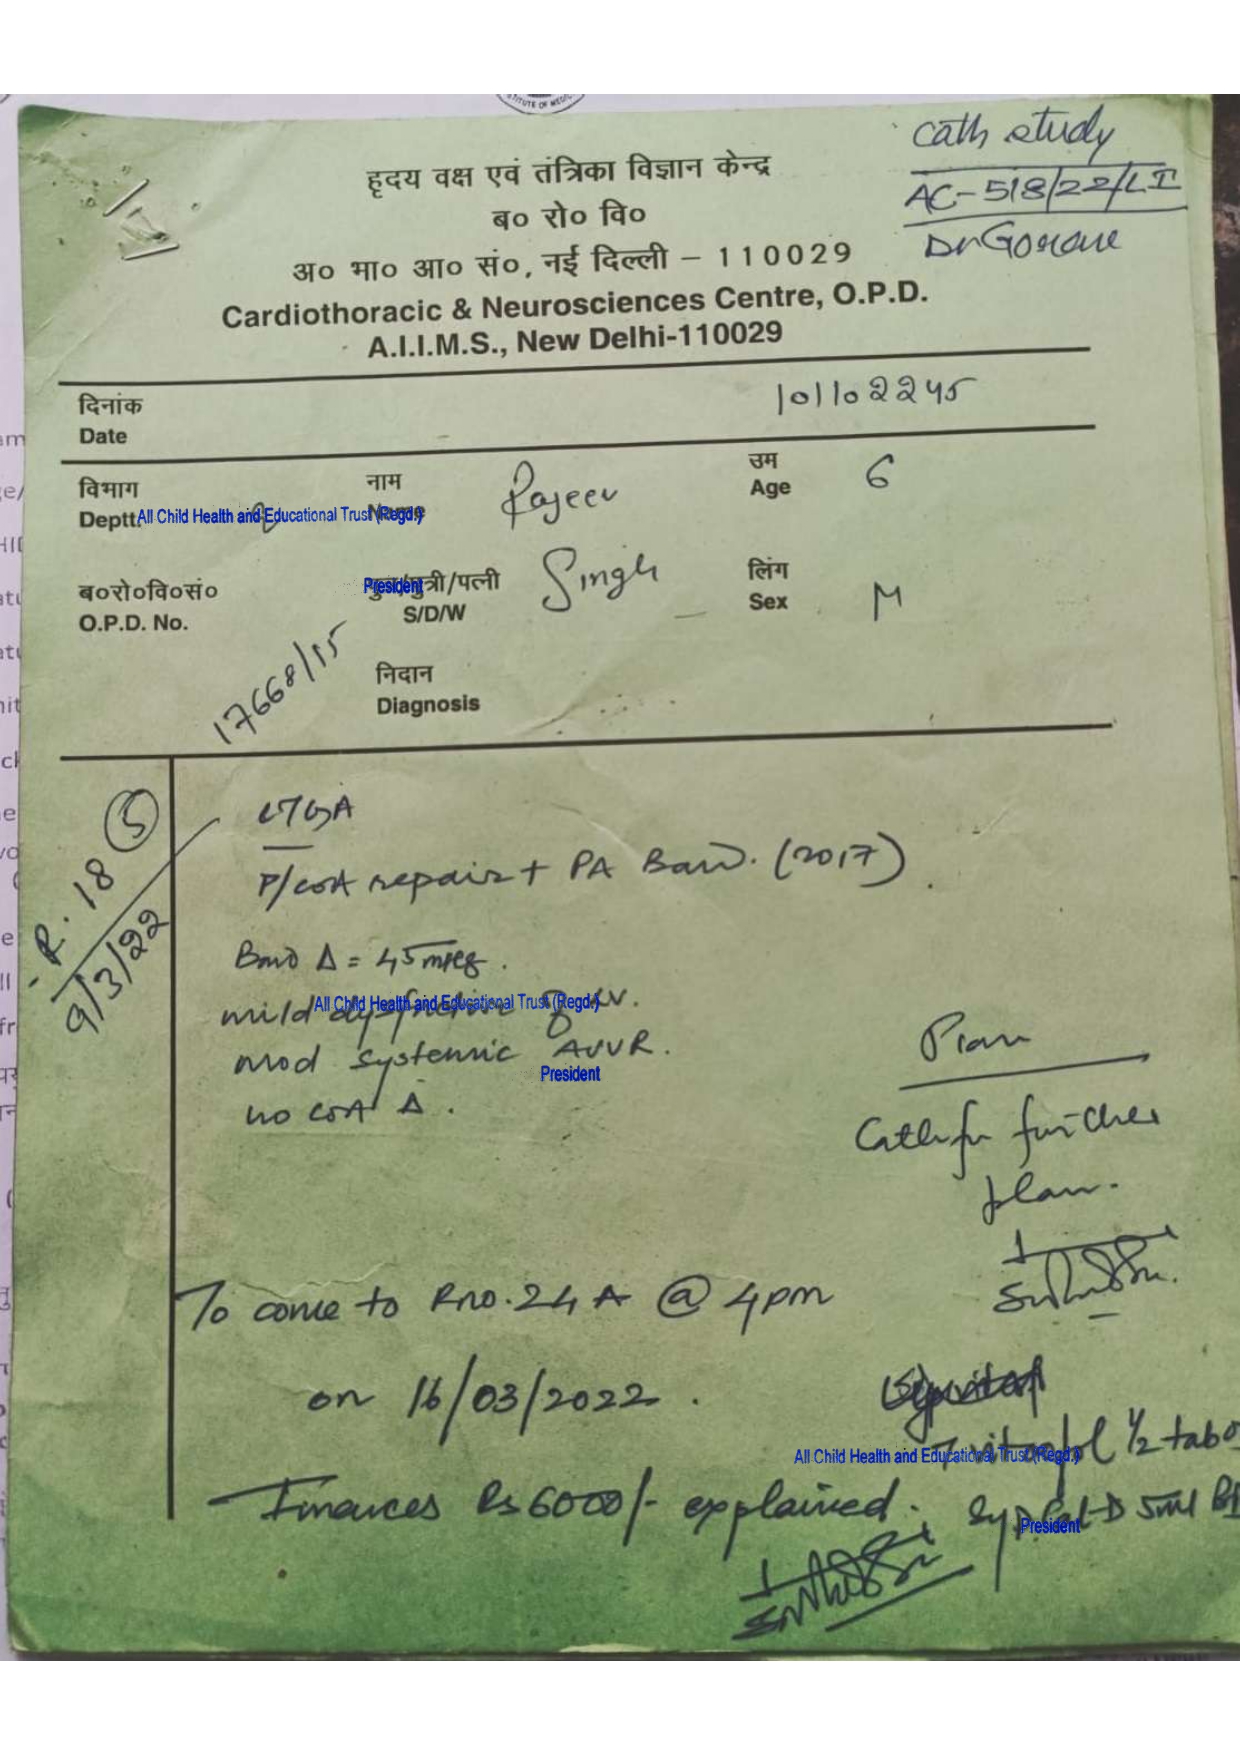 STITUTE OF MEDIC
cath study
AC-518/22/LI
हृदय वक्ष एवं तंत्रिका विज्ञान केन्द्र
ब० रो० वि०
अ० भा० आ० सं०, नई दिल्ली – 110029
Cardiothoracic & Neurosciences Centre, O.P.D.
A.I.I.M.S., New Delhi-110029
दिनांक
Date
101102245
विभाग
Deptt.
नाम
Name
Rajeev
उम
Age
6
All Child Health and Educational Trust (Regd.)
President
ब०रो०वि०सं०
O.P.D. No.
17668/15
पुत्र/पुत्री/पत्नी
S/D/W
Singh
लिंग
Sex
M
निदान
Diagnosis
R. 18 5
9/3/22
P/COA repair + PA Band. (2017)
Band Δ = 45 mmHg.
mild dysfunction of RV.
All Child Health and Educational Trust (Regd.)
mod systemic AVVR.
President
no COA Δ.
Plan
Cath for further
plan.
To come to Rno. 24 A @ 4pm
on 16/03/2022.
1/2 tab
All Child Health and Educational Trust (Regd.)
Finances Rs 6000/- explained.
Syp. Cal-D 5ml
President